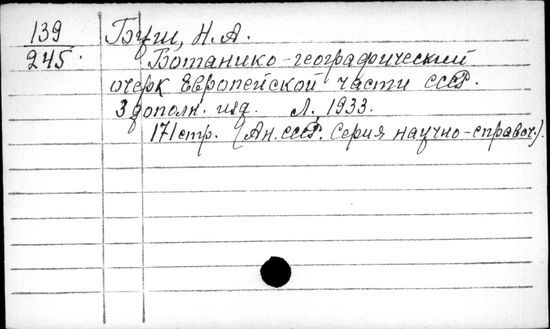 139 Буш, Н.А.
245. Ботанико-географический
очерк Европейской части СССР.
3 дополн. изд. Л., 1933.
171 стр. (Ан. СССР. Серия научно-справоч.).